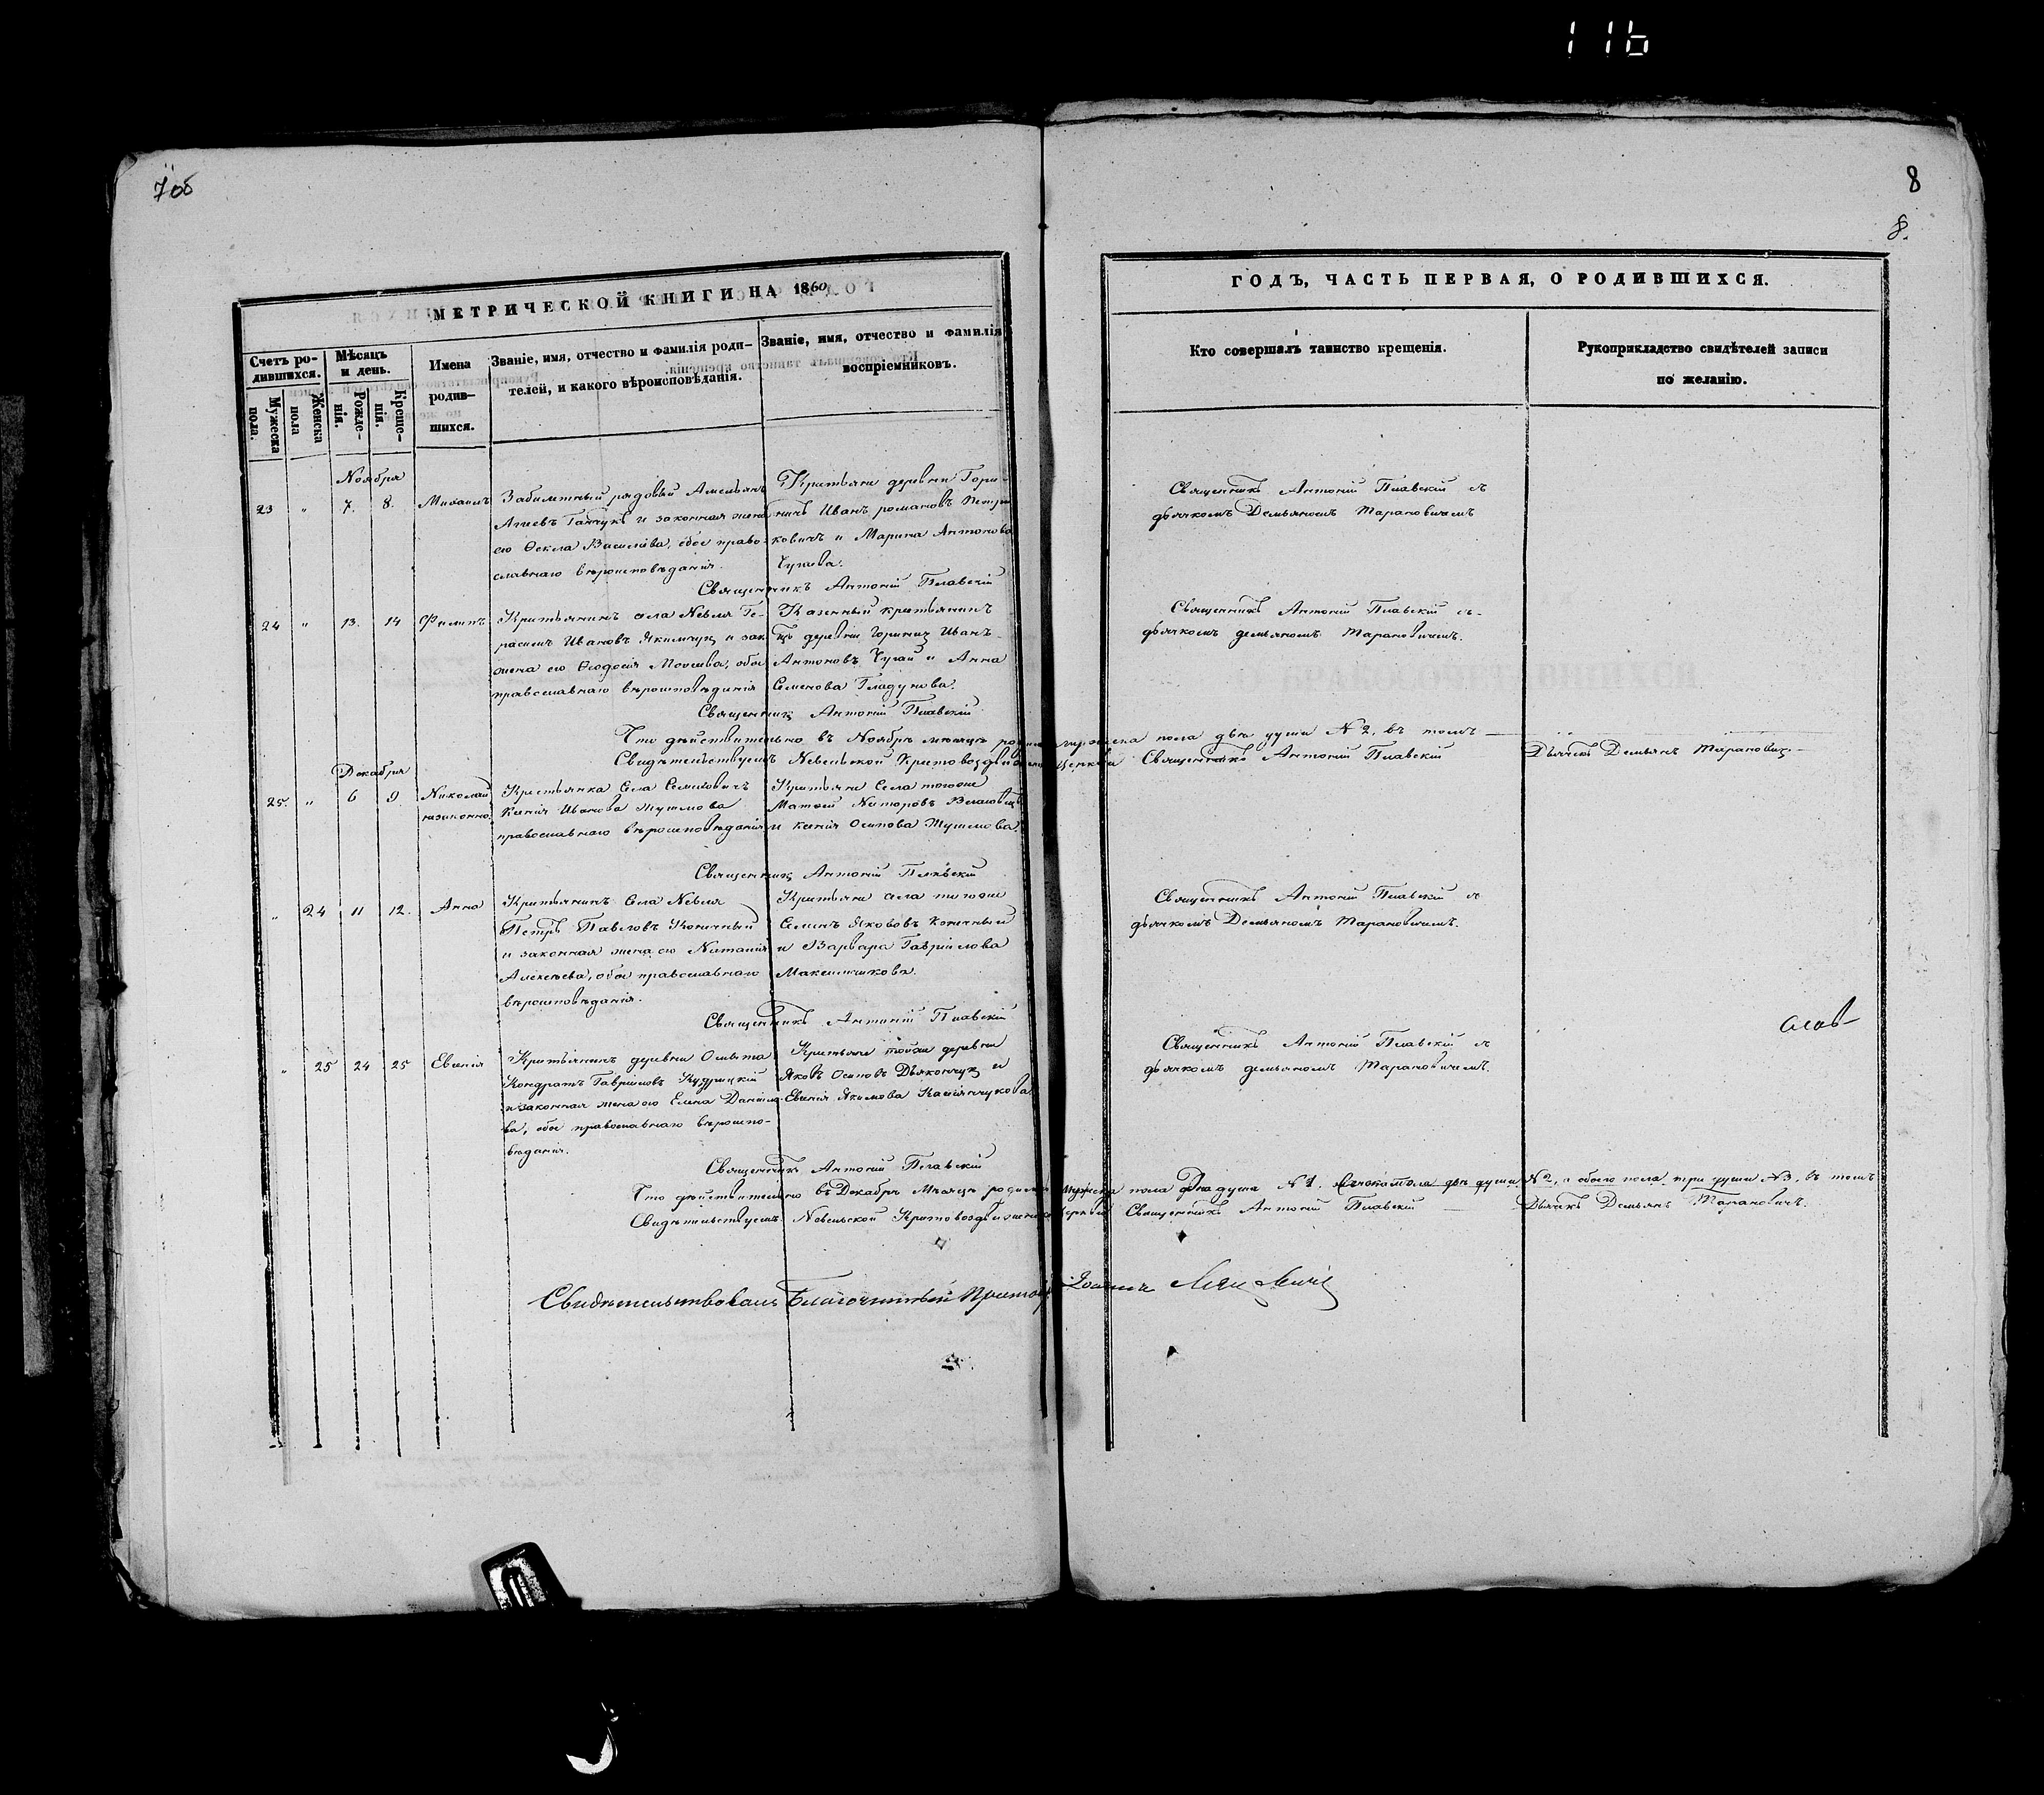 116
7 об
8
8.
МЕТРИЧЕСКОЙ КНИГИ НА 1860
ГОДЪ, ЧАСТЬ ПЕРВАЯ, О РОДИВШИХСЯ.
Счетъ родившихся.
Мужеска пола.
Женска пола
Мѣсяцъ и день.
Рожденія.
Крещенія.
Имена родившихся.
Званіе, имя, отчество и фамилія родителей, и какого вѣроисповѣданія.
Званіе, имя, отчество и фамилія воспріемниковъ.
Кто совершалъ таинство крещенія.
Рукоприкладство свидѣтелей записи по желанію.
Ноября
23 " 7. 8. Михаилъ
рядовый Амельянъ
и законная жена
его Ѳекла Василіева, обое право-
славнаго вѣроисповѣданія.
Крестьяне деревни Гори-
ничъ Иванъ романовъ Петри-
ковичъ и Марина Антонова
Чугаева.
Священникъ Антоній Плавскій
Священникъ Антоній Плавскій съ
дьячкомъ Демьяномъ Тарановичемъ
24 " 13. 14 Филипъ
Крестьянинъ села Невля Ге-
расимъ Ивановъ Якимчукъ и зак.
жена его Ѳеодосія Моисеева, обое
православнаго вѣроисповѣданія
Казенный крестьянинъ
деревни Гориничъ Иванъ
Антоновъ Чугай и Анна
Семенова Гладунова.
Священникъ Антоній Плавскій
Священникъ Антоній Плавскій съ
дьячкомъ демьяномъ Тарановичемъ.
Что дѣйствительно въ Ноябрѣ мѣсяцѣ мужеска пола двѣ души №2, въ томъ
Свидѣтельствуемъ Невельской Крестовоздвиженской церкви Священникъ Антоній Плавскій
Дьячекъ Демьянъ Тарановичъ
Декабря
25. " 6 9 Николай незаконно.
Крестьянка Села Семиховичъ
Ксенія Иванова
православнаго вѣроисповѣданія
Крестьяне Села тогоже
и Ксенія Осипова
Священникъ Антоній Плавскій
" 24 11 12. Анна
Крестьянинъ Села Невля
Петръ Павловъ Конечный
и законная жена его Наталія
Алексѣева, обое православнаго
вѣроисповѣданія.
Крестьяне села тогоже
Семенъ Якововъ Конечный
и Варвара Гавріилова
Священникъ Антоній Плавскій
Священникъ Антоній Плавскій съ
дьячкомъ Демьяномъ Тарановичемъ.
" 25 24 25 Евгенія
Крестьянинъ деревни
Кондратъ Гавріиловъ Кудрицкій
и законная жена его Елена Даніило-
ва, обое православнаго вѣроиспо-
вѣданія.
Крестьяне тойже деревни
Яковъ Осиповъ Дьякончукъ и
Евгенія Якимова
Священникъ Антоній Плавскій
Священникъ Антоній Плавскій съ
дьячкомъ демьяномъ Тарановичемъ.
Что дѣйствительно въ Декабрѣ Мѣсяцѣ родилось мужеска пола одна душа №1, женска пола двѣ души №2, а обоего пола три души №3, въ томъ
Свидѣтельствуемъ Невельской Крестовоздвиженской церкви Священникъ Антоній Плавскій
Дьячекъ Демьянъ Тарановичъ.
Свидѣтельствовалъ Благочинный